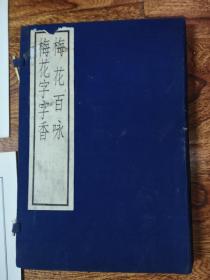 梅花百咏
梅花字字香